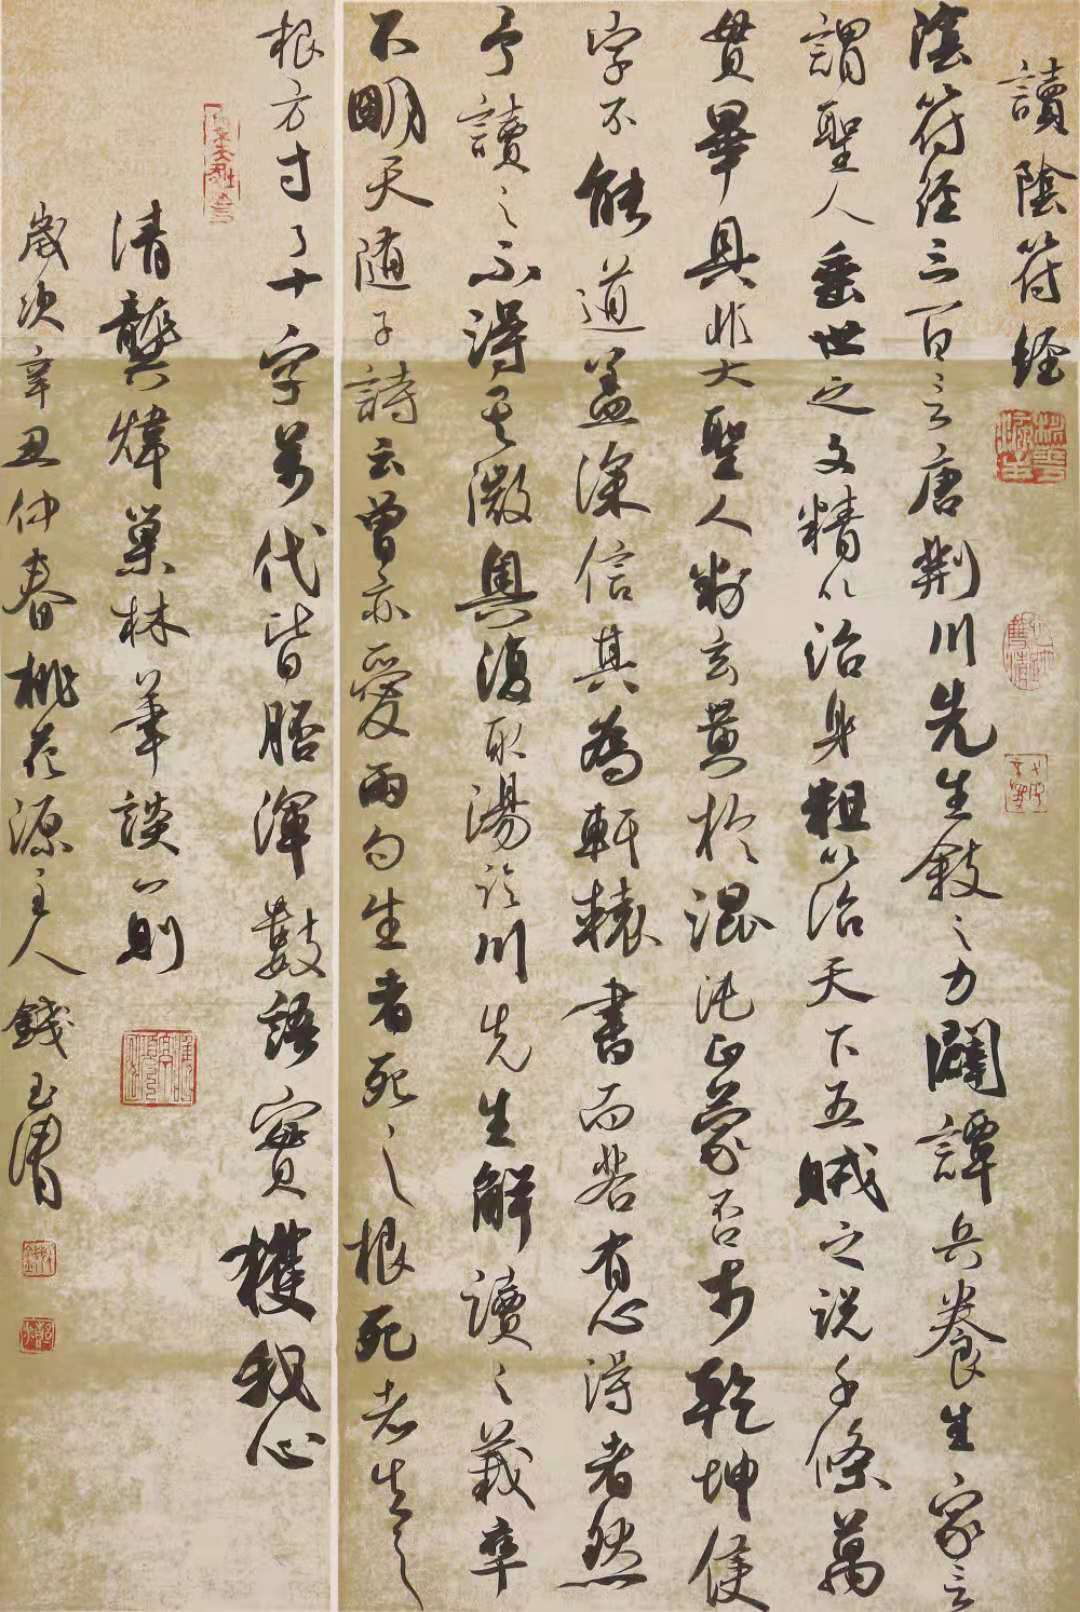 讀陰符經
陰符経三百言唐荆川先生敍之力闢譚兵養生家言
謂聖人垂世之文精以治身粗以治天下五賊之説千條萬
貫畢具非大聖人剖玄黄於混沌正蒙否于乾坤便
字不能道蓋深信其為軒轅書而若有心得者然
予讀之不得其微奥復取湯臨川先生解讀之義率
不明天随子詩云曾亦愛兩句生者死之根死者生之
根方寸了十字萬代皆胚渾數語實獲我心
清龔煒巢林筆談一則
嵗次辛丑仲春桃花源主人錢玉清